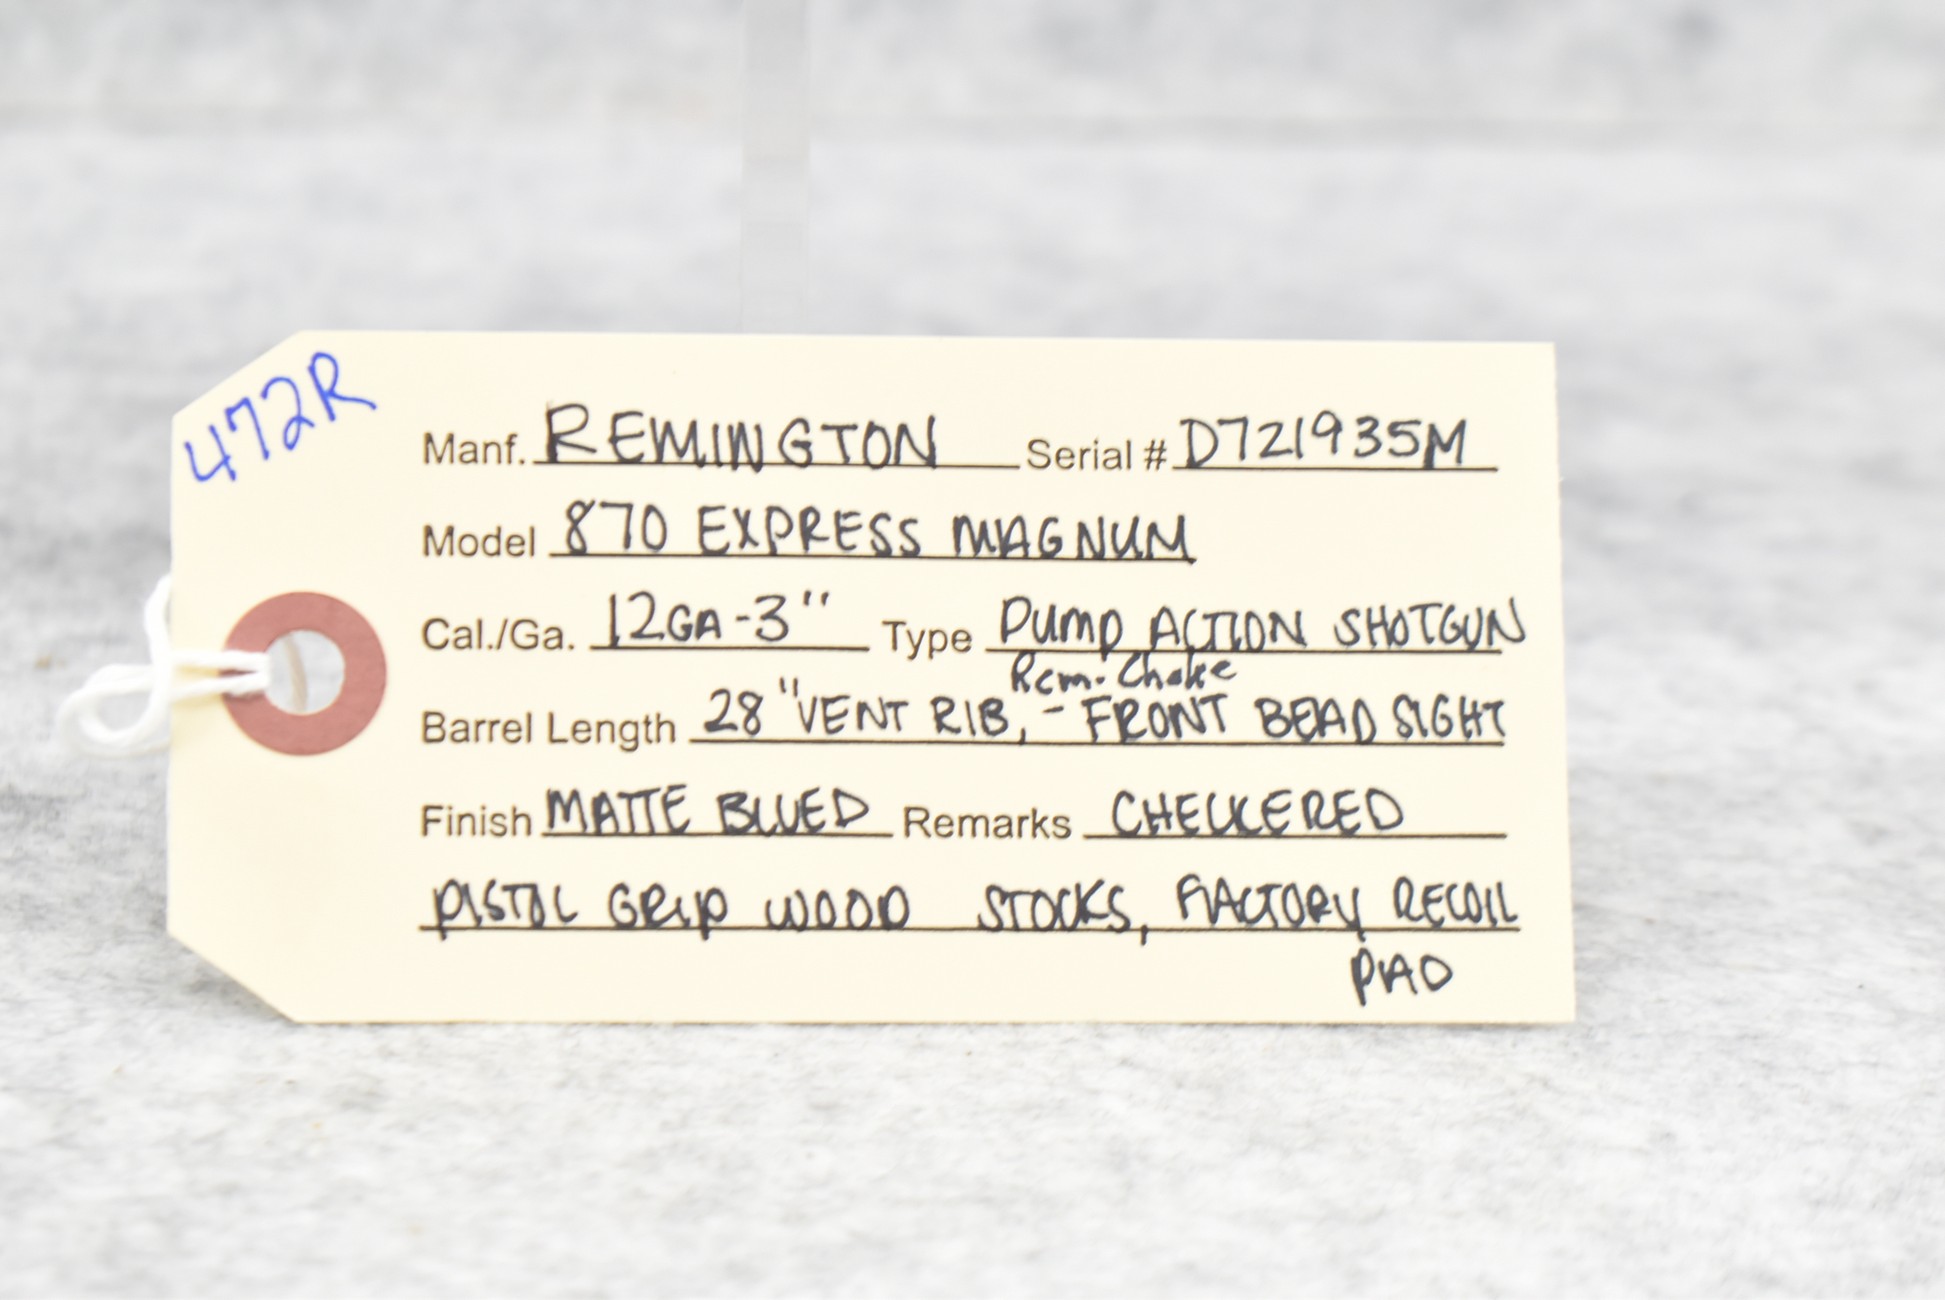 472R
Manf. REMINGTON Serial # D721935M
Model 870 EXPRESS MAGNUM
Cal./Ga. 12GA-3" Type PUMP ACTION SHOTGUN
Rem. Choke
Barrel Length 28" VENT RIB, - FRONT BEAD SIGHT
Finish MATTE BLUED Remarks CHECKERED
PISTOL GRIP WOOD STOCKS, FACTORY RECOIL
PAD